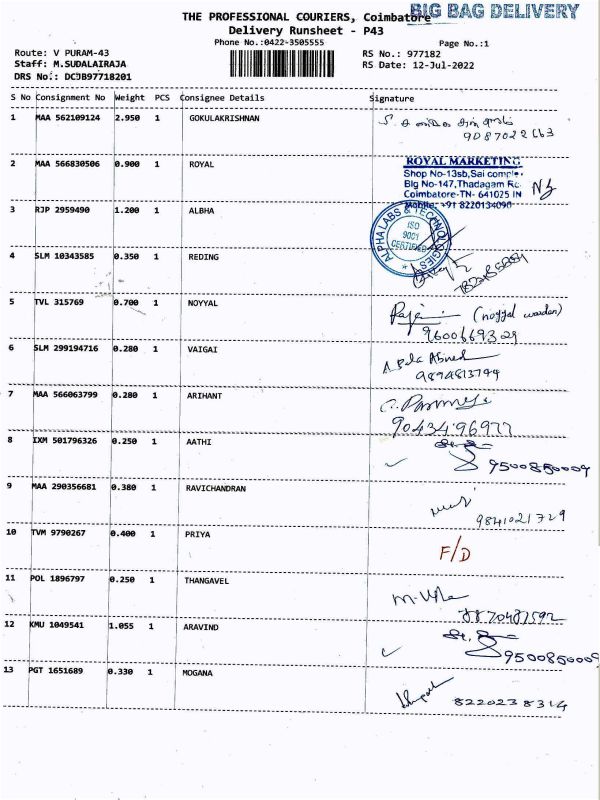 BIG BAG DELIVERY
THE PROFESSIONAL COURIERS, Coimbatore
Delivery Runsheet - P43
Phone No.:0422-3505555
Page No.:1
Route: V PURAM-43
RS No.: 977182
Staff: M.SUDALAIRAJA
RS Date: 12-Jul-2022
DRS No.: DCJB97718201
S No Consignment No Weight PCS Consignee Details Signature
1 MAA 562109124 2.950 1 GOKULAKRISHNAN
2 MAA 566830506 0.900 1 ROYAL
ROYAL MARKETING
Shop No-13sb,Sai
Blg No-147,Thadagam
Coimbatore-TN- 641025 IN
Mobile: +91 8220134090
3 RJP 2959490 1.200 1 ALBHA
ALPHA LABS & TECHNOLOGIES
ISO
9001
CERTIFIED
4 SLM 10343585 0.350 1 REDING
5 TVL 315769 0.700 1 NOYYAL
(noyyal wooden)
9600669329
6 SLM 299194716 0.280 1 VAIGAI
9894813744
7 MAA 566063799 0.280 1 ARIHANT
9043496977
8 IXM 501796326 0.250 1 AATHI
9500850009
9 MAA 290356681 0.380 1 RAVICHANDRAN
9841021729
10 TVM 9790267 0.400 1 PRIYA
F/D
11 POL 1896797 0.250 1 THANGAVEL
8870487592
12 KMU 1049541 1.055 1 ARAVIND
9500850009
13 PGT 1651689 0.330 1 MOGANA
8220238314